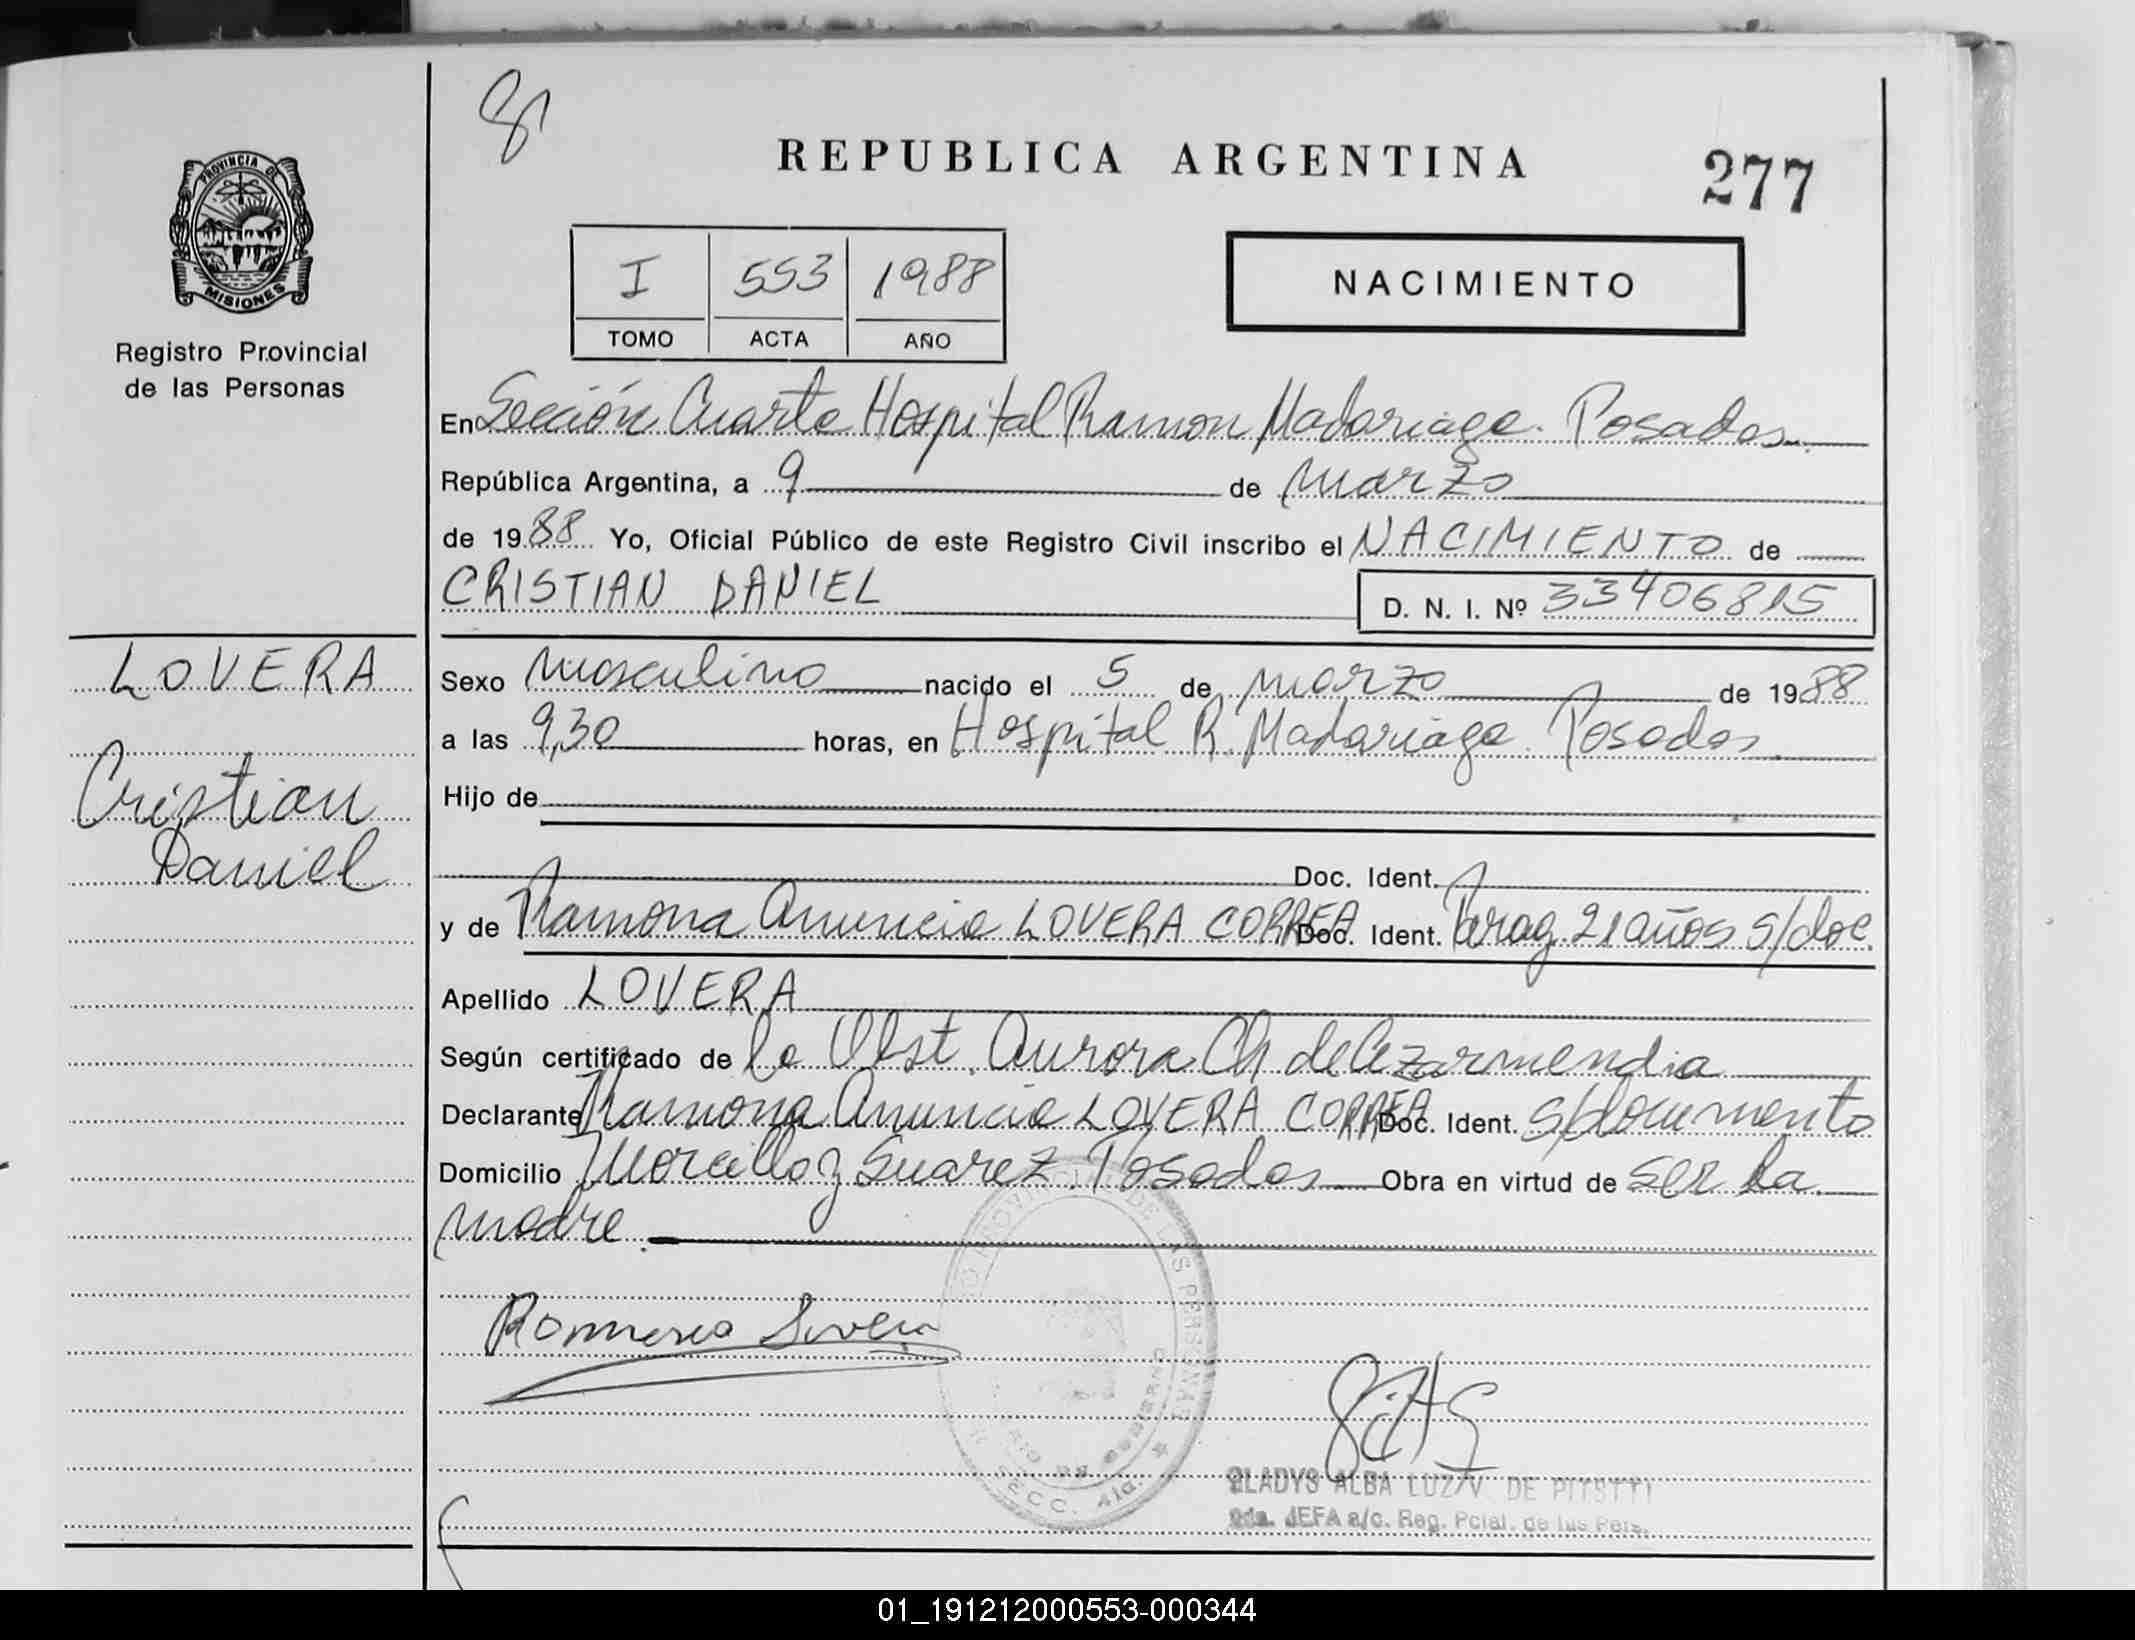 REPUBLICA ARGENTINA
277
PROVINCIA DE
MISIONES
Registro Provincial
de las Personas
I 553 1988
TOMO ACTA AÑO
NACIMIENTO
En Sección Cuarta Hospital Ramon Madariaga. Posadas.
República Argentina, a 9 de marzo
de 1988 Yo, Oficial Público de este Registro Civil inscribo el NACIMIENTO de
CRISTIAN DANIEL
D. N. I. Nº 33406815
LOVERA
Cristian
Daniel
Sexo masculino nacido el 5 de marzo de 1988
a las 9,30 horas, en Hospital R. Madariaga. Posadas.
Hijo de
Doc. Ident.
y de Ramona Anuncia LOVERA CORREA Doc. Ident. Parag. 21 años s/doc.
Apellido LOVERA
Según certificado de la Obst. Aurora Ch de Azarmendia
Declarante Ramona Anuncia LOVERA CORREA Doc. Ident. s/documento
Domicilio y Suarez. Posadas Obra en virtud de ser la
madre.
Lovera
DE LAS PERSONAS
SECC. 4ta.
GLADYS ALBA LUZ V. DE
2da. JEFA a/c. Reg. Pcial. de las Pers.
01_191212000553-000344